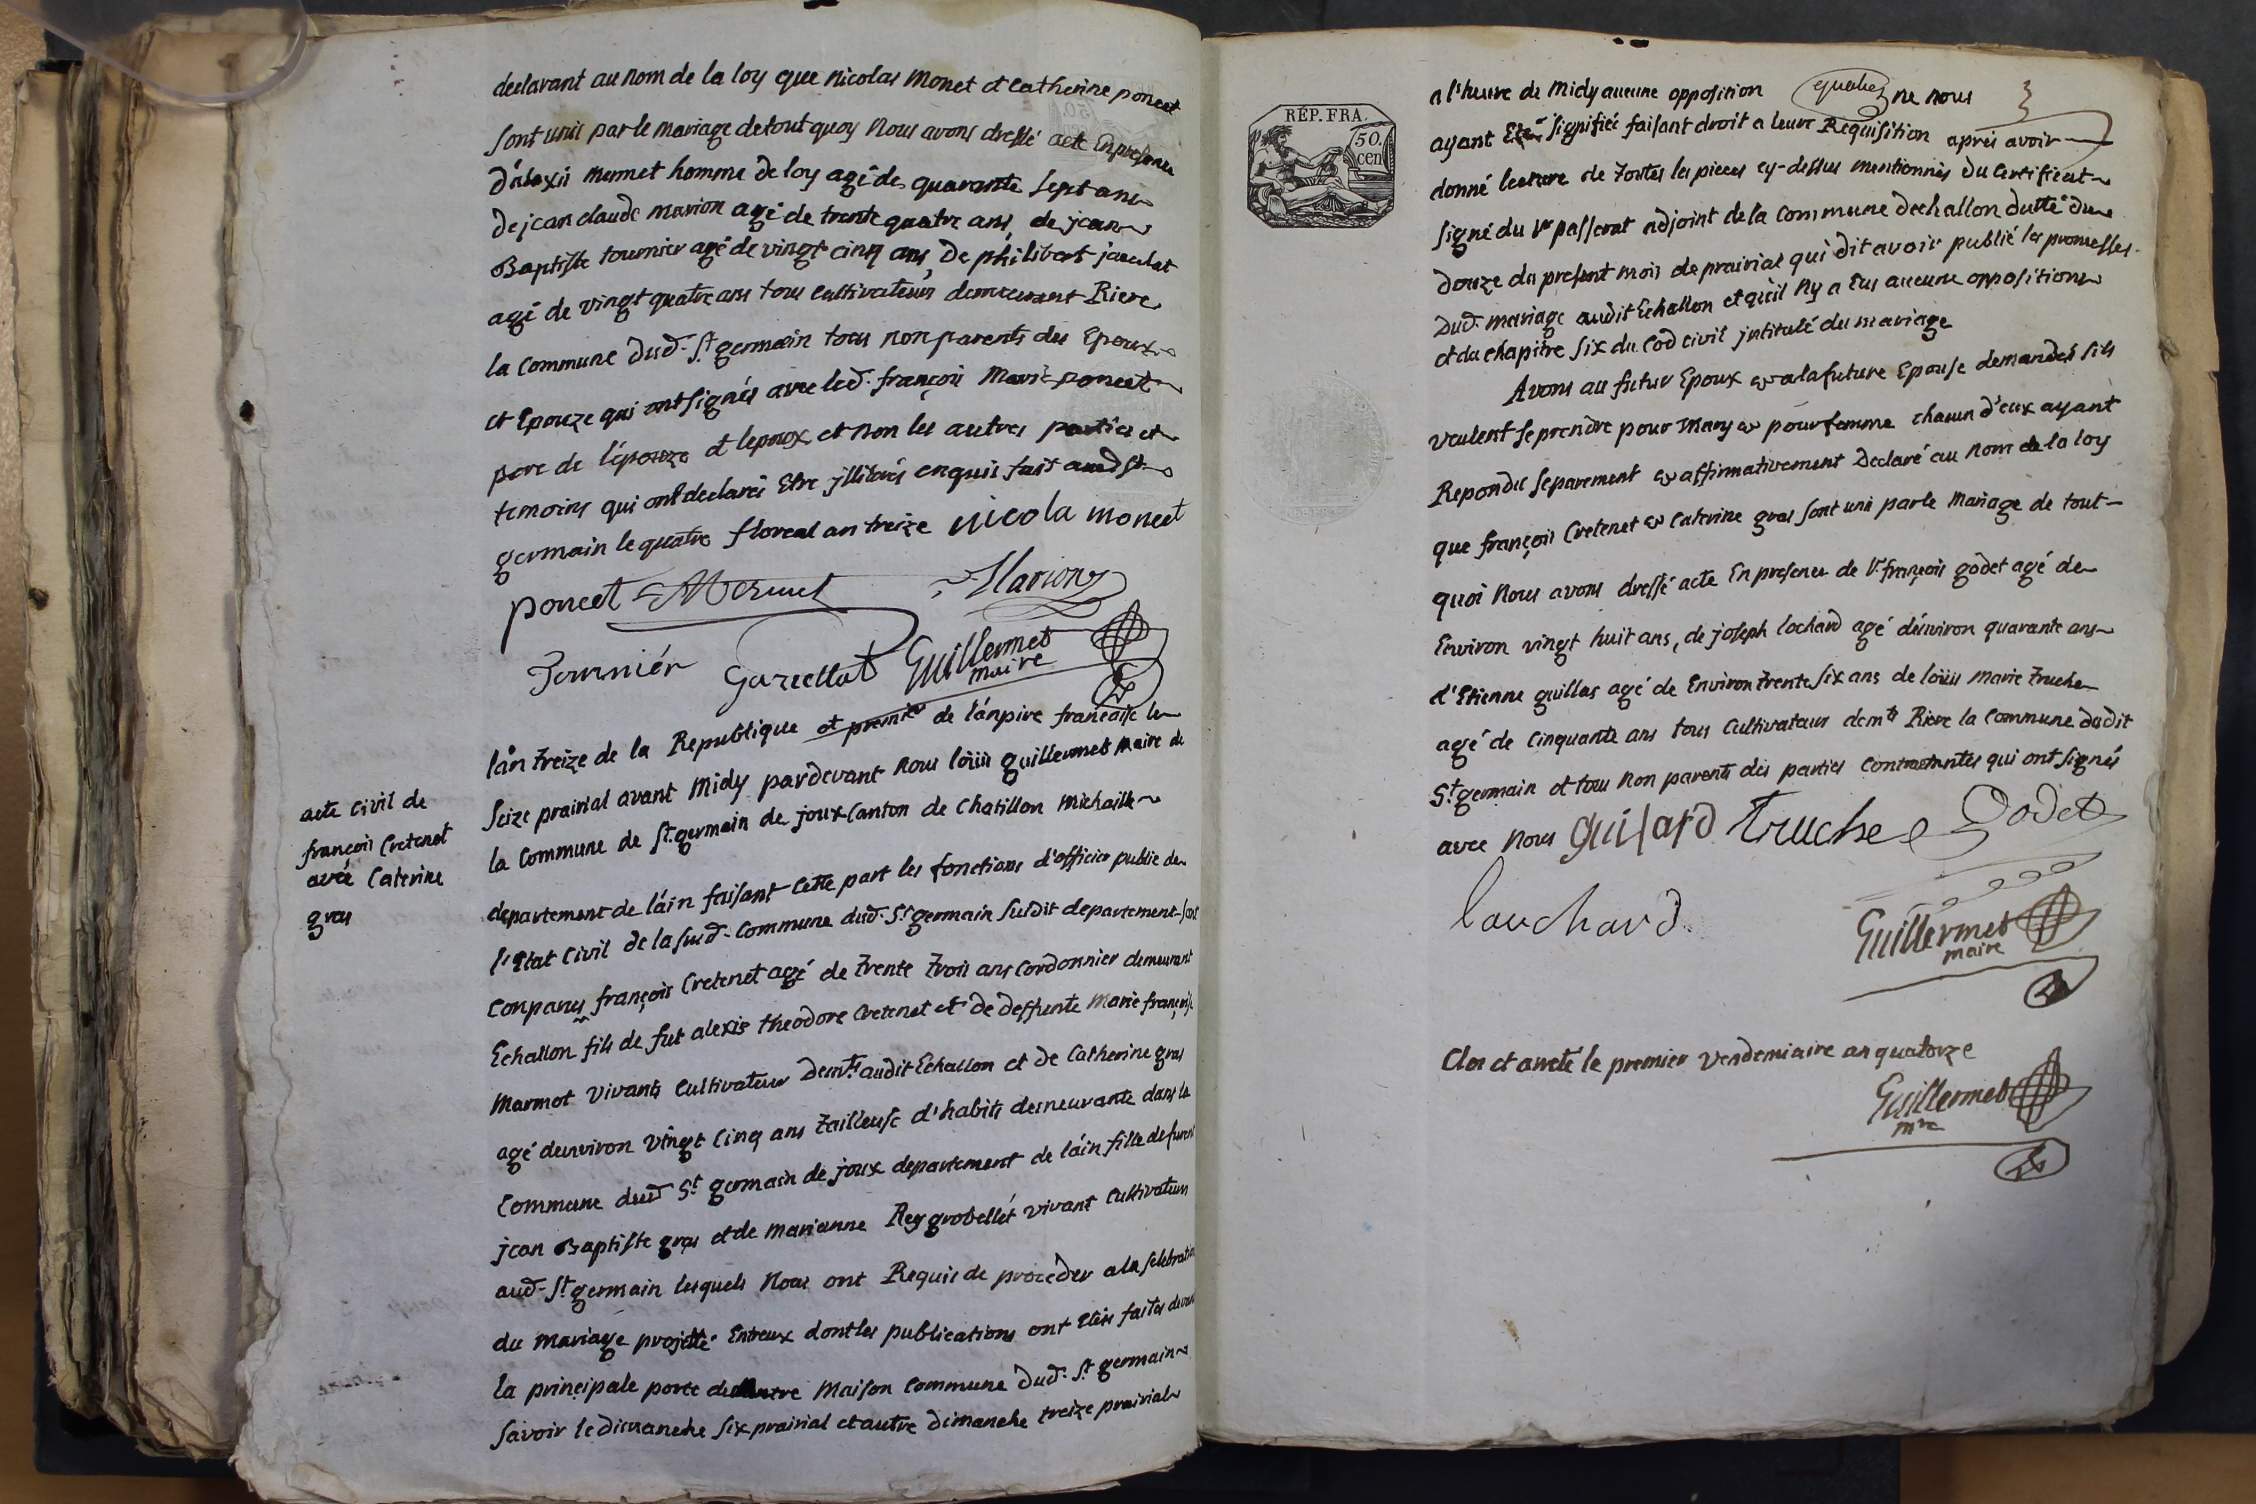 declarant au nom de la loy que nicolas monet et Catherine poncet
sont unis par le mariage de tout quoy nous avons dressé acte En presence
d'alexis mermet homme de loy agé de quarante sept ans
de jean claude marion agé de trente quatre ans, de jean
Baptiste tournier agé de vingt cinq ans, de philibert
agé de vingt quatre ans tous cultivateurs demeurant Riere
la commune dud. St germain tous non parents des Epoux
et Epouze qui ont signés avec led. françois Marie poncet
pere de l'épouze et lepoux et non les autres parties et
temoins qui ont declarés Etre jllitérés enquis fait aud St
germain le quatre floreal an treize nicola moncet
poncet Mermet Marion
Tournier Guillermet
maire
acte civil de
françois Cretenet
avec Caterine
gras
lan treize de la Republique et premier de lanpire francaise le
seize prairial avant Midy pardevant nous loüis guillermet Maire de
la Commune de St germain de joux Canton de Chatillon Michaille
departement de láin faisant Cette part les fonctions d'officier public de
l'Etat Civil de la sud. Commune dud. St germain susdit departement sont
Conparus françois Cretenet agé de trente trois ans Cordonnier demeurant
Echallon fils de fut alexis theodore Cretenet et de deffunte Marie françoise
Marmot vivants Cultivateur demts. audit Echallon et de Catherine gras
agé denviron vingt Cinq ans tailleuse d'habits demeurante dans la
Commune dud St germain de joux departement de láin fille de
jean Baptiste gras et de marianne Rey grobellét vivant Cultivateurs
aud. St germain lesquels Nous ont Requis de proceder a la selebration
du mariage projetté Entreux dont les publications ont Etés faites devant
la principale porte de Maison Commune dud. St germain
savoir le dimanche six prairial et autre dimanche treize prairial
RÉP. FRA.
50.
cen
a l'heure de Midy aucune opposition ne nous
ayant Eté signifiée faisant droit a leure Requisition aprés avoir
donné lecture de toutes les pieces cy-dessus mentionnés du Certificat
signé du Sr passerat adjoint de la Commune dechallon datté du
douze du present mois de prairial qui dit avoir publié les promesses
dud. mariage audit Echallon et qu'il Ny a Eus aucune opposition
et du chapitre six du Cod civil jntitulé du mariage
Avons au futur Epoux & a la future Epouse demandés sils
veulent se prendre pour Mary & pour femme chacun d'eux ayant
Repondu separement & affirmativement Declaré au nom de la loy
que françois Cretenet & Caterine gras sont unis par le Mariage de tout
quoi Nous avons dressé acte En presence de Sr françois godet agé de
Environ vingt huit ans, de joseph lochard agé dénviron quarante ans
d'Etienne guillas agé de Environ trente six ans de loüis marie truche
agé de Cinquante ans tous Cultivateurs demts Riere la Commune dudit
St germain et tous Non parents des parties Contractantes qui ont signés
avec Nous guilard truche Godet
lauchard
Guillermet
maire
Clos et arreté le premier vendemiaire an quatorze
Guillermet
mre